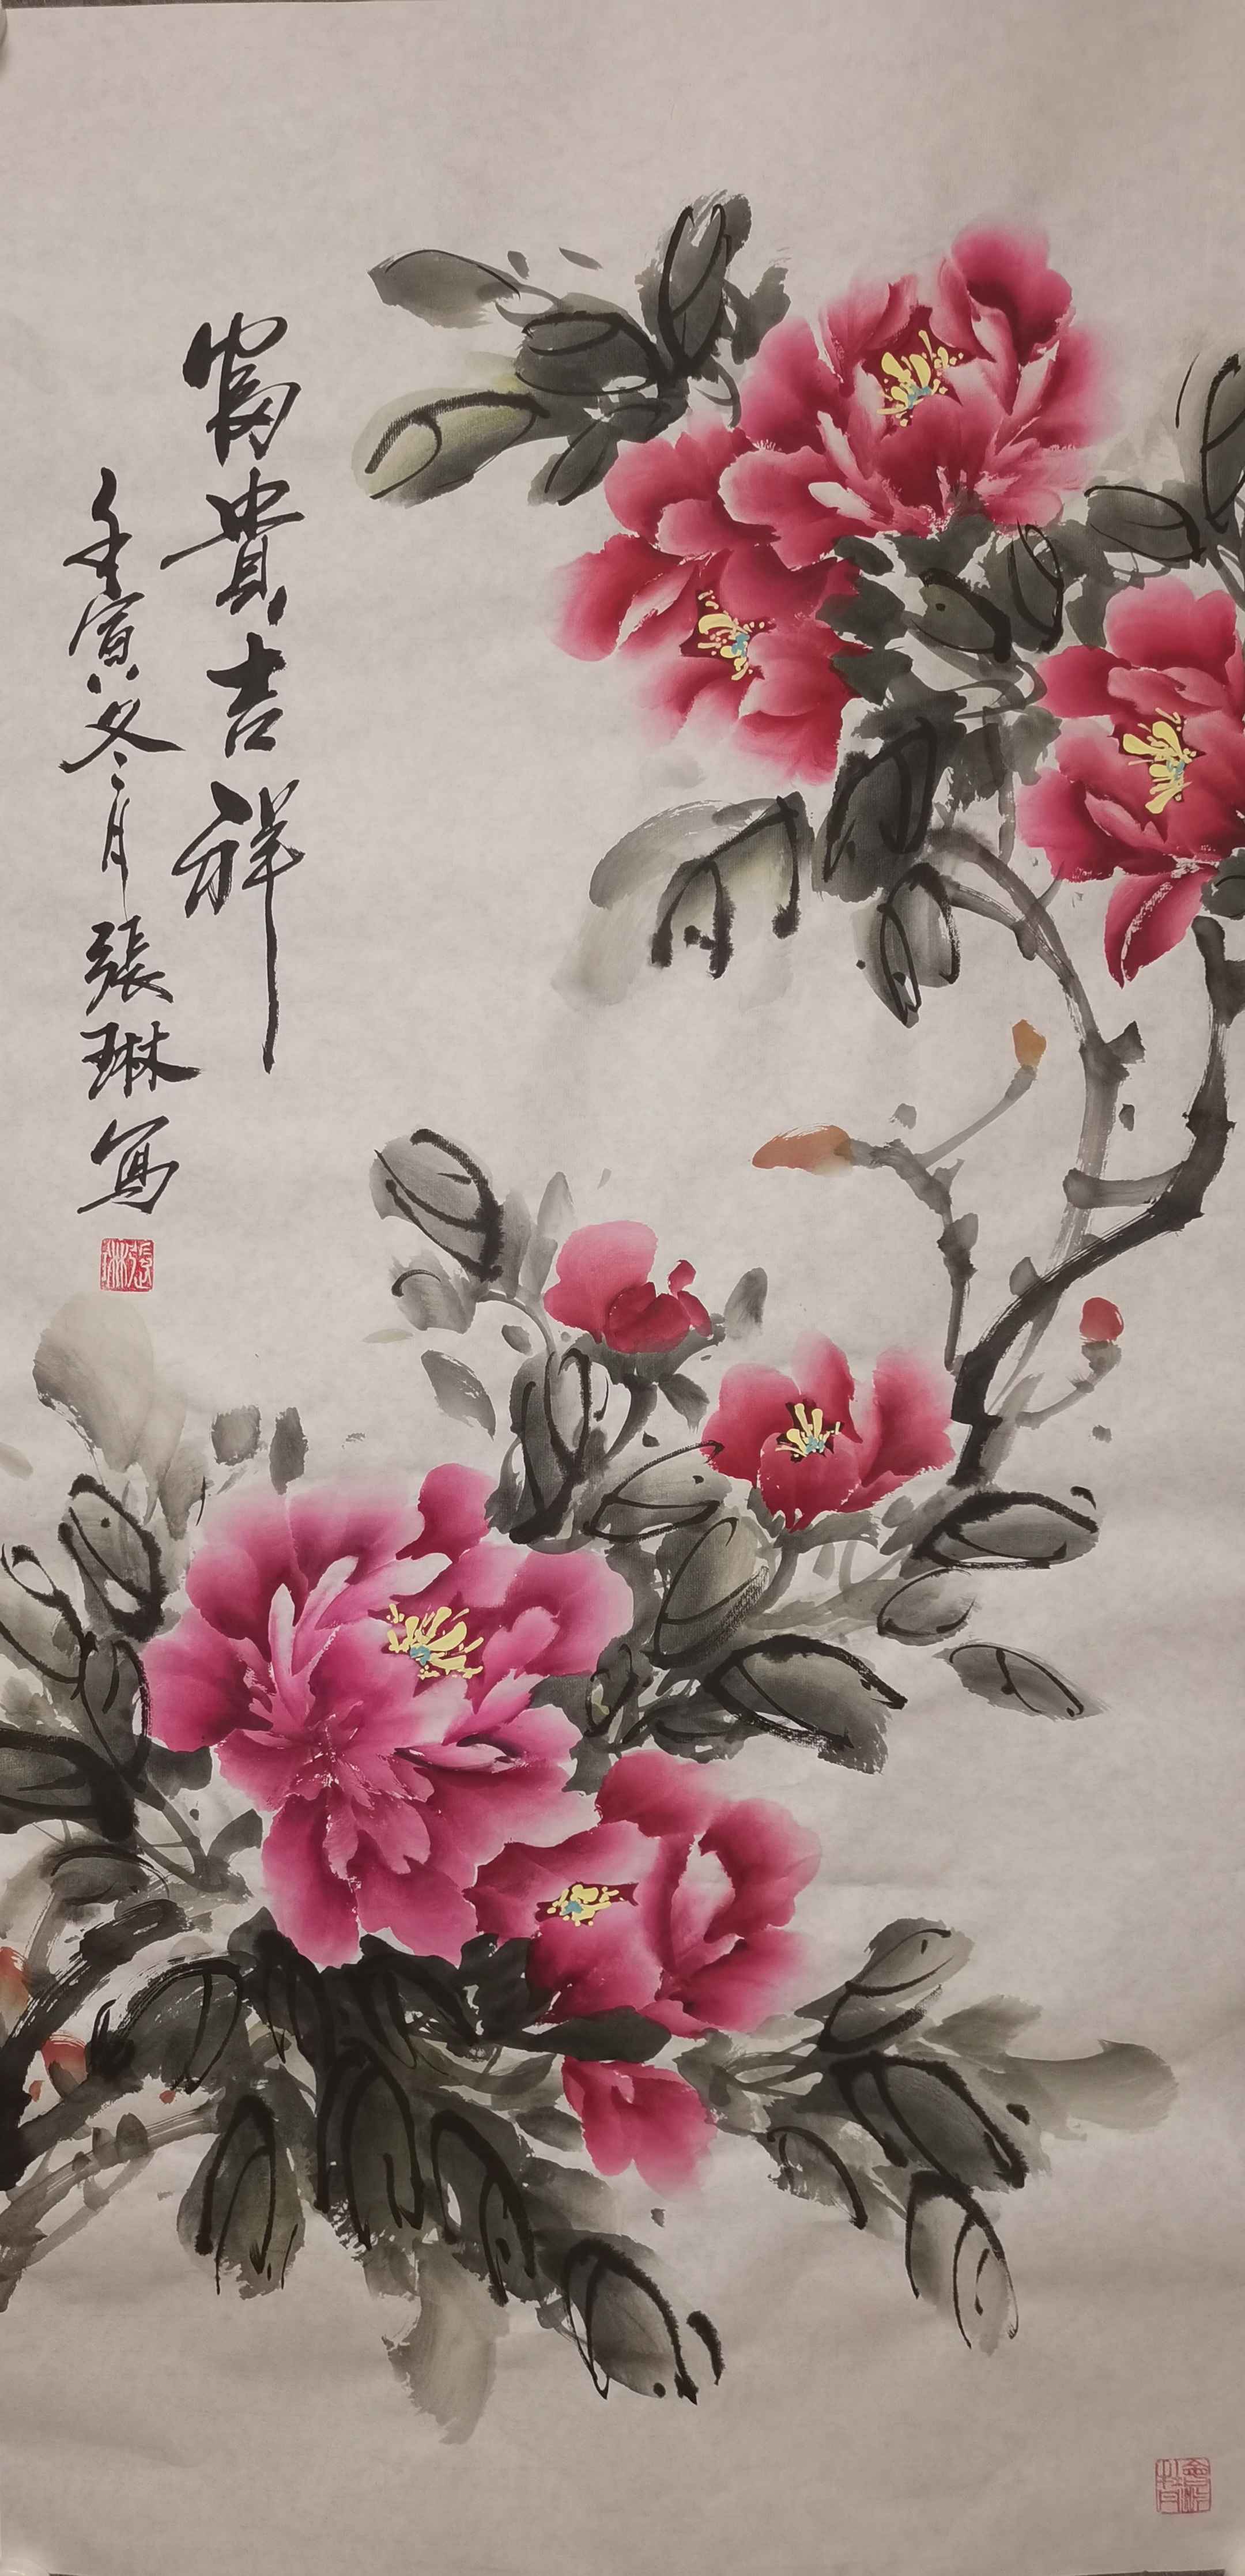 富貴吉祥
壬寅冬月張琳寫
張琳